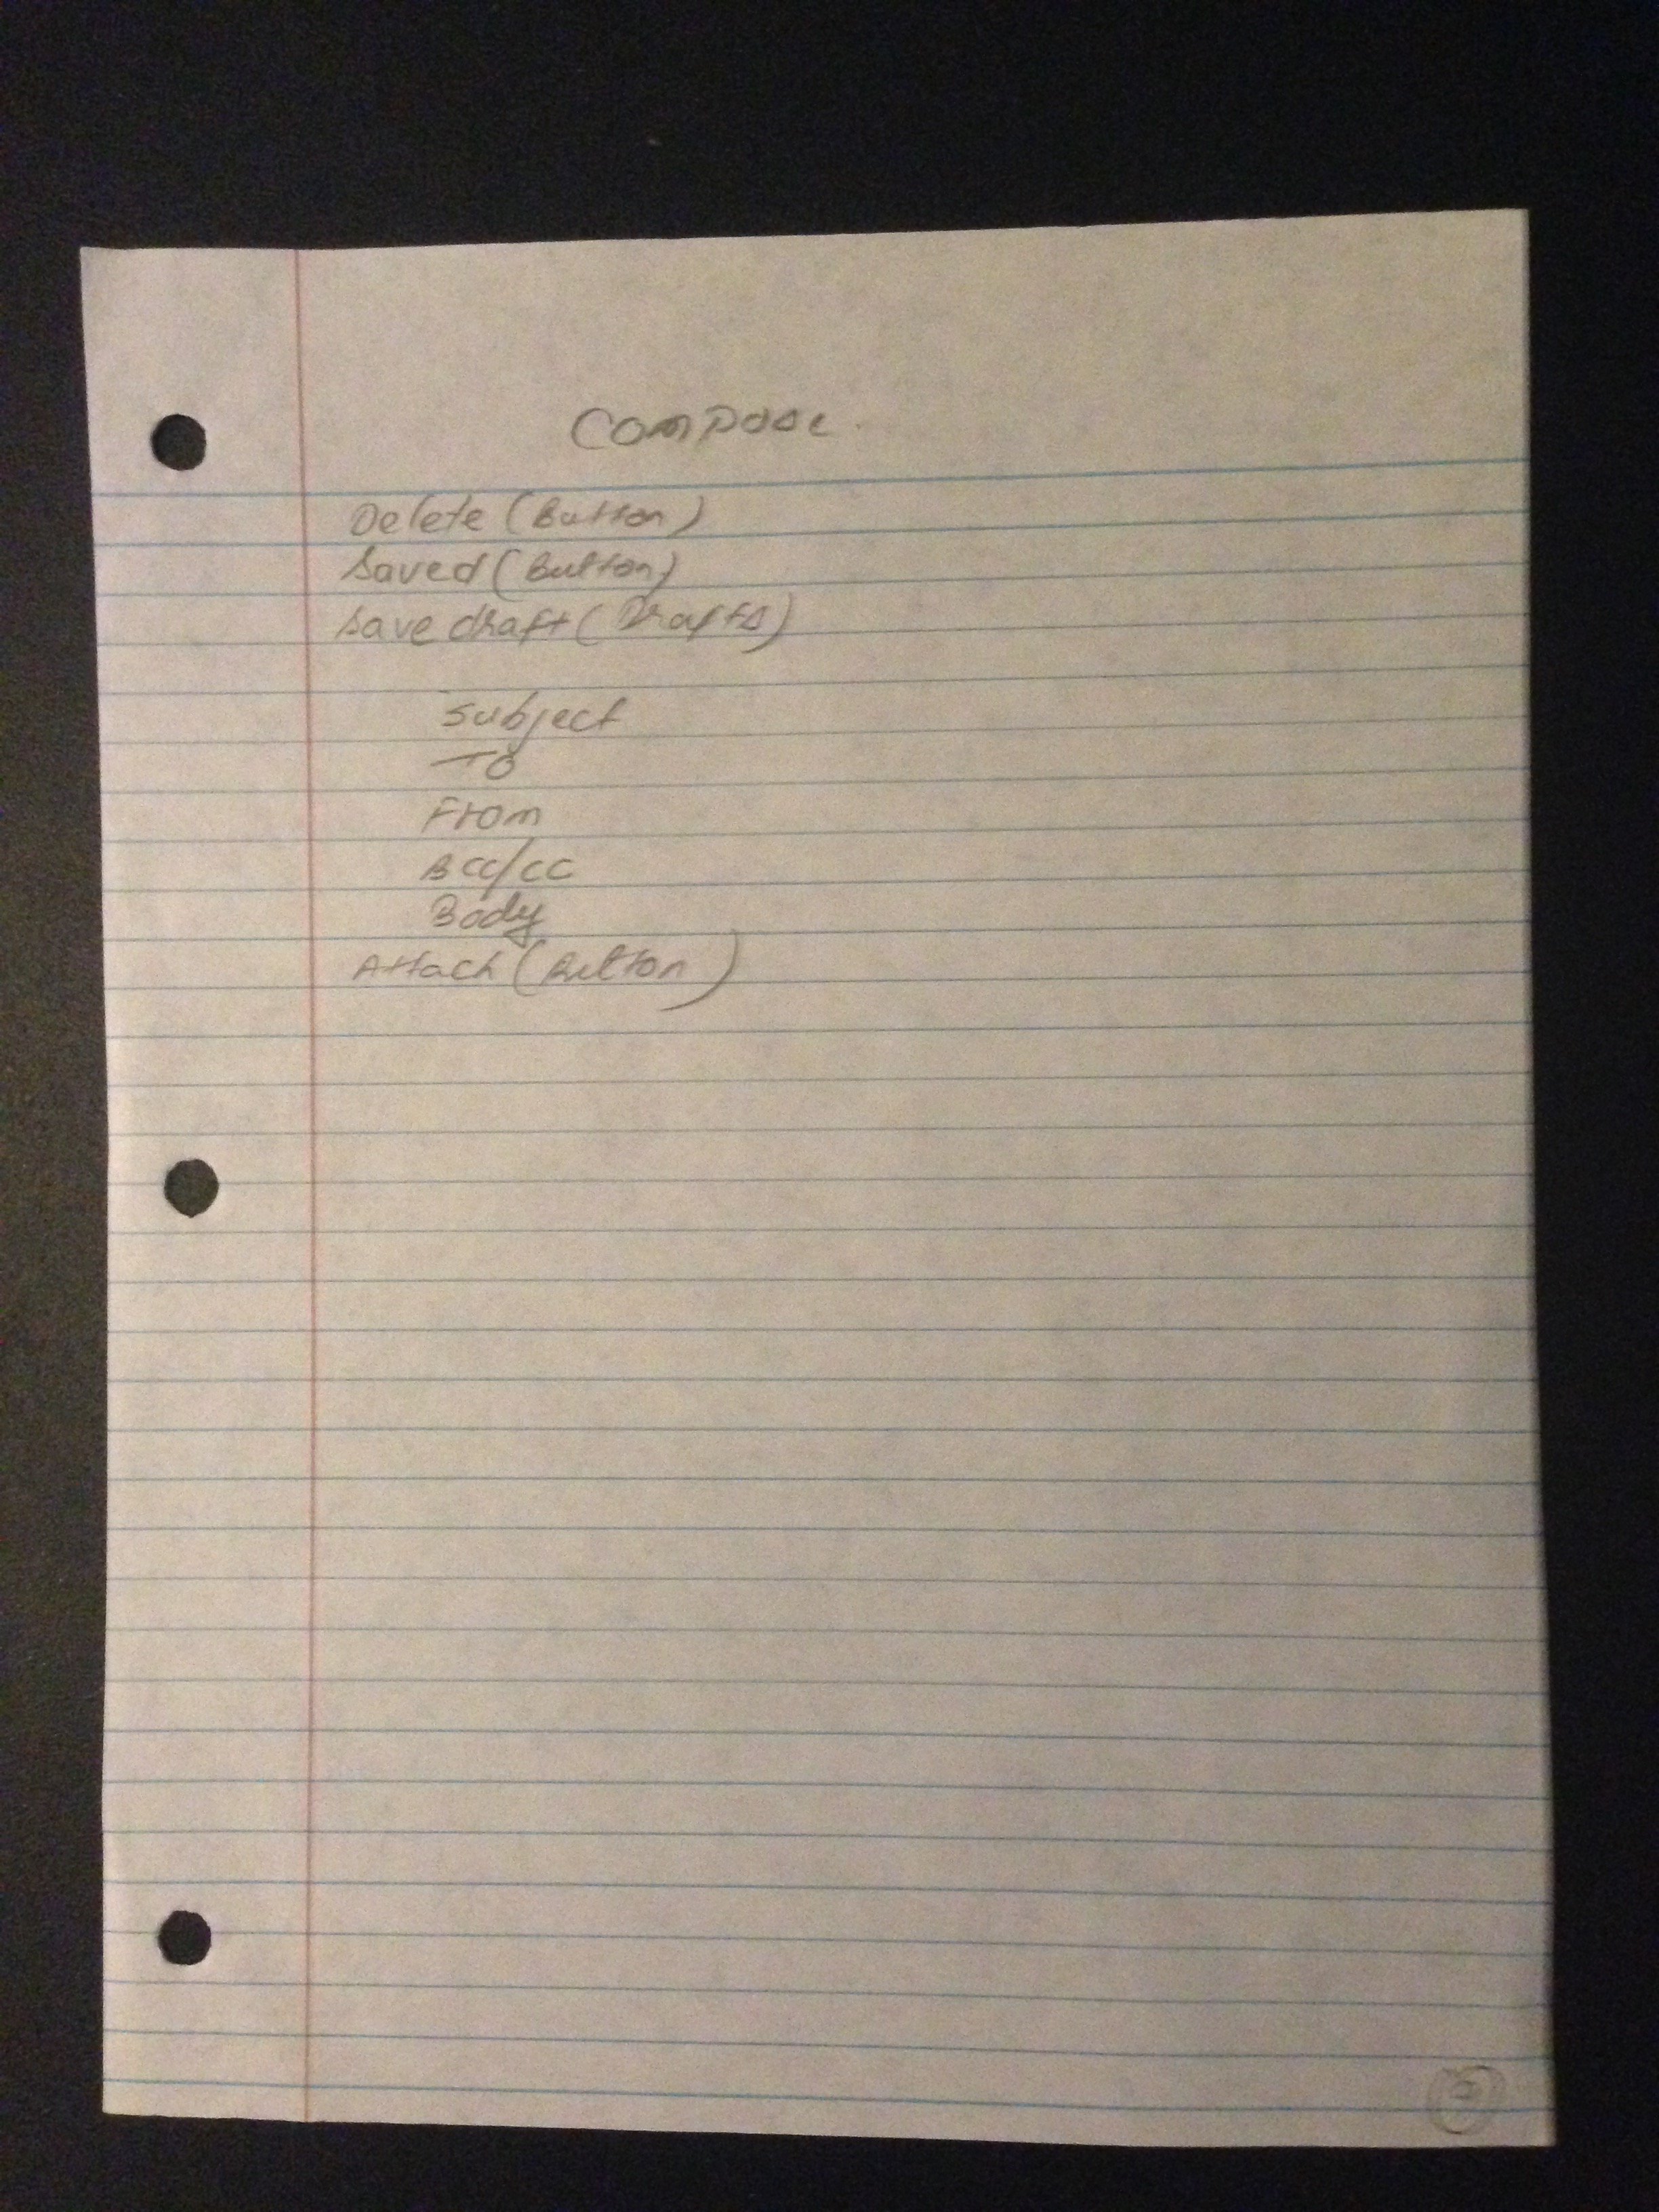 Compose
Delete (Button)
Saved (Button)
Save draft (Drafts)
Subject
To
From
BCC/CC
Body
Attach (Button)